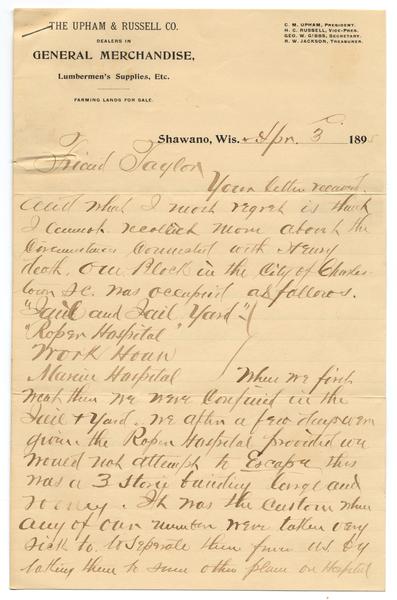 THE UPHAM & RUSSELL CO.
DEALERS IN
GENERAL MERCHANDISE,
Lumbermen's Supplies, Etc.
FARMING LANDS FOR SALE.
C. M. UPHAM, PRESIDENT.
H. C. RUSSELL, VICE-PRES.
GEO. W. GIBBS, SECRETARY.
R. W. JACKSON, TREASURER.
Shawano, Wis. Apr. 3 189
Friend Taylor
Your letter received.
and what I most regret is that
I cannot recollect more about the
Circumstances Connected with Henry
death. Our Block in the City of Charles-
town S.C. was occupied as follows.
"Jail and Jail Yard"
"Roper Hospital"
Work House
Marine Hospital When we first
went then we were Confined in the
Jail & Yard. We after a few days were
given the Roper Hospital provided we
would not attempt to Escape this
was a 3 Storie building large and
roomy. It was the Custom when
any of our number were taken very
sick to. to Seperate them from us by
taking them to some other place or Hospital